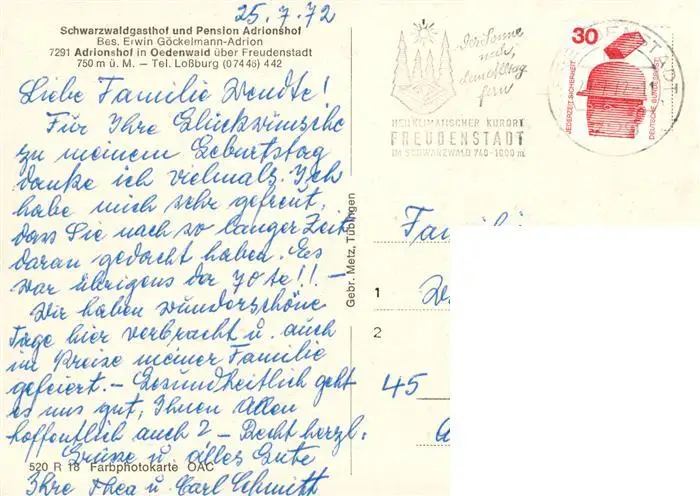 25.7.72
Schwarzwaldgasthof und Pension Adrionshof
Bes. Erwin Göckelmann-Adrion
7291 Adrionshof in Oedenwald über Freudenstadt
750 m ü. M. – Tel. Loßburg (07446) 442
Liebe Familie Wendte!
Für Ihre Glückwünsche
zu meinem Geburtstag
danke ich vielmals. Ich
habe mich sehr gefreut,
dass Sie nach so langer Zeit
daran gedacht haben. Es
war übrigens der 70te!! –
Wir haben wunderschöne
Tage hier verbracht u. auch
im Kreise meiner Familie
gefeiert. – Gesundheitlich geht
es uns gut, Ihnen Allen
hoffentlich auch? – Recht herzl.
Grüsse u. alles Gute
Ihre Thea u. Carl Schmitt
520 R 18 Farbphotokarte OAC
Gebr. Metz, Tübingen
Der Sonne
nach,
dem Alltag
fern
HEILKLIMATISCHER KURORT
FREUDENSTADT
IM SCHWARZWALD 740-1000 m
30
JEDERZEIT SICHERHEIT
DEUTSCHE BUNDESPOST
FREUDENSTADT
1
2
45